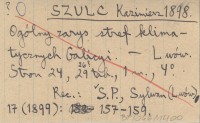 ? SZULC Kazimierz 1898.
Ogólny zarys stref klima-
tycznych Galicyi. — Lwów.
Stron 24, tab., 1 w., 4°.
Rec.: S.P., Sylwan (Lwów),
17 (1899): 157-159.